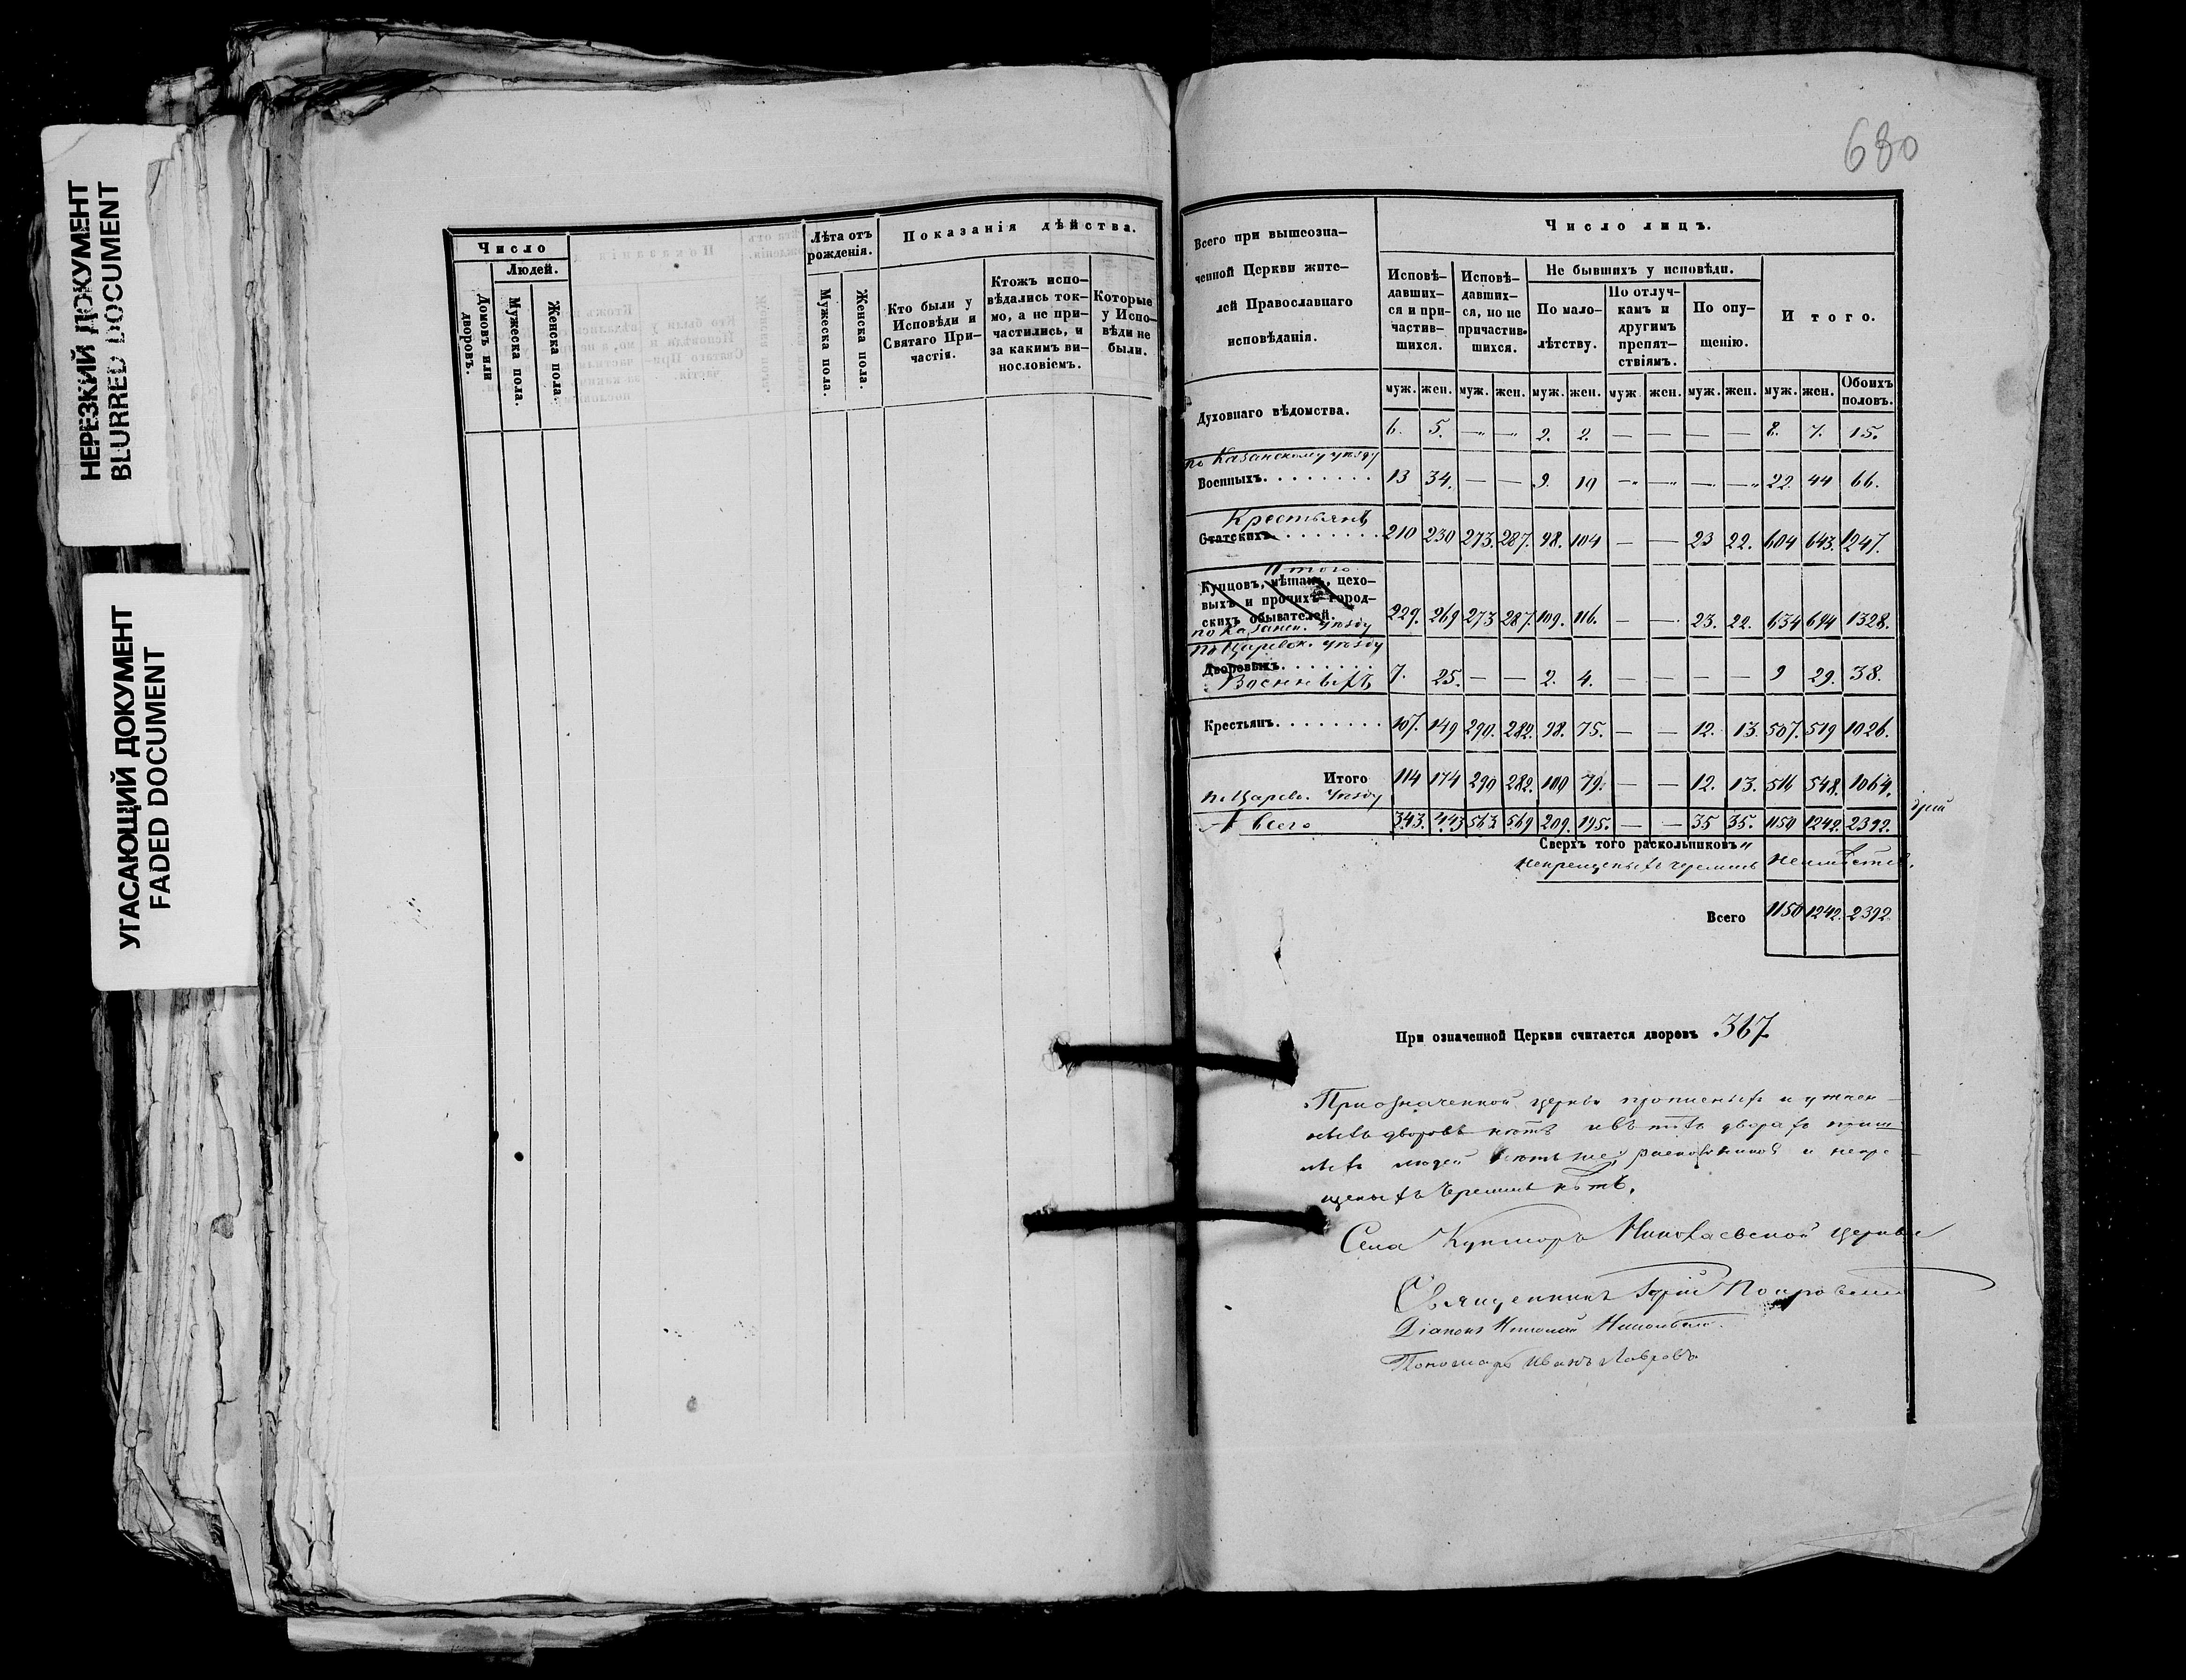 НЕРЕЗКИЙ ДОКУМЕНТ
BLURRED DOCUMENT
УГАСАЮЩИЙ ДОКУМЕНТ
FADED DOCUMENT
Число
Людей.
Домовъ или дворовъ.
Мужеска пола.
Женска пола.
Лѣта отъ рожденія.
Мужеска пола
Женска пола.
Показанія дѣйства.
Кто были у Исповѣди и Святаго Причастія.
Ктожъ исповѣдались токмо, а не причастились, и за какимъ винословіемъ.
Которые у Исповѣди не были.
680
Всего при вышеозначенной Церкви жителей Православнаго исповѣданія.
Число лицъ.
Исповѣдавшихся и причастившихся.
Исповѣдавшихся, но не причастившихся.
Не бывшихъ у исповѣди.
По малолѣтству.
По отлучкамъ и другимъ препятствіямъ.
По опущенію.
Итого.
муж. жен. муж. жен. муж. жен. муж жен. муж. жен. муж. жен. Обоихъ половъ.
Духовнаго вѣдомства. 6. 5. — — 2. 2. — — — — 8. 7. 15.
по Казанскому уѣзду
Военныхъ. 13 34. — — 9. 10 — — — — 22. 44 66.
Крестьянъ
Статскихъ. 210 230 273. 287. 98. 104 — — 23 22. 604 643. 1247.
Итого
Купцовъ, мѣщанъ, цеховыхъ и прочихъ городскихъ обывателей.
по Казанск. уѣзду 229. 269 273 287. 109. 116. — — 23. 22. 634 694 1328.
по Царевок. уѣзду
Дворовыхъ.
Военныхъ 7. 25. — — 2. 4. — — — — 9 29. 38.
Крестьянъ. 107. 149 290. 282. 98. 75. — — 12. 13. 507. 519 1026.
Итого
по Царево. уѣзду 114 174 290 282. 100 79. — — 12. 13. 516 548. 1064.
А всего 343. 443 563. 569 209. 195. — — 35 35. 1150 1242. 2392.
Сверхъ того раскольниковъ и
некрещеныхъ черемисъ
Всего 1150 1242. 2392.
При означенной Церкви считается дворовъ 367
При означенной церкви
дворовъ нѣтъ
людей раскольниковъ и некре-
щеныхъ черемисъ нѣтъ.
Села Кушморъ Николаевской церкви
Священникъ Гурій Покровскій
Діаконъ Николай
Пономарь Иванъ Лавровъ